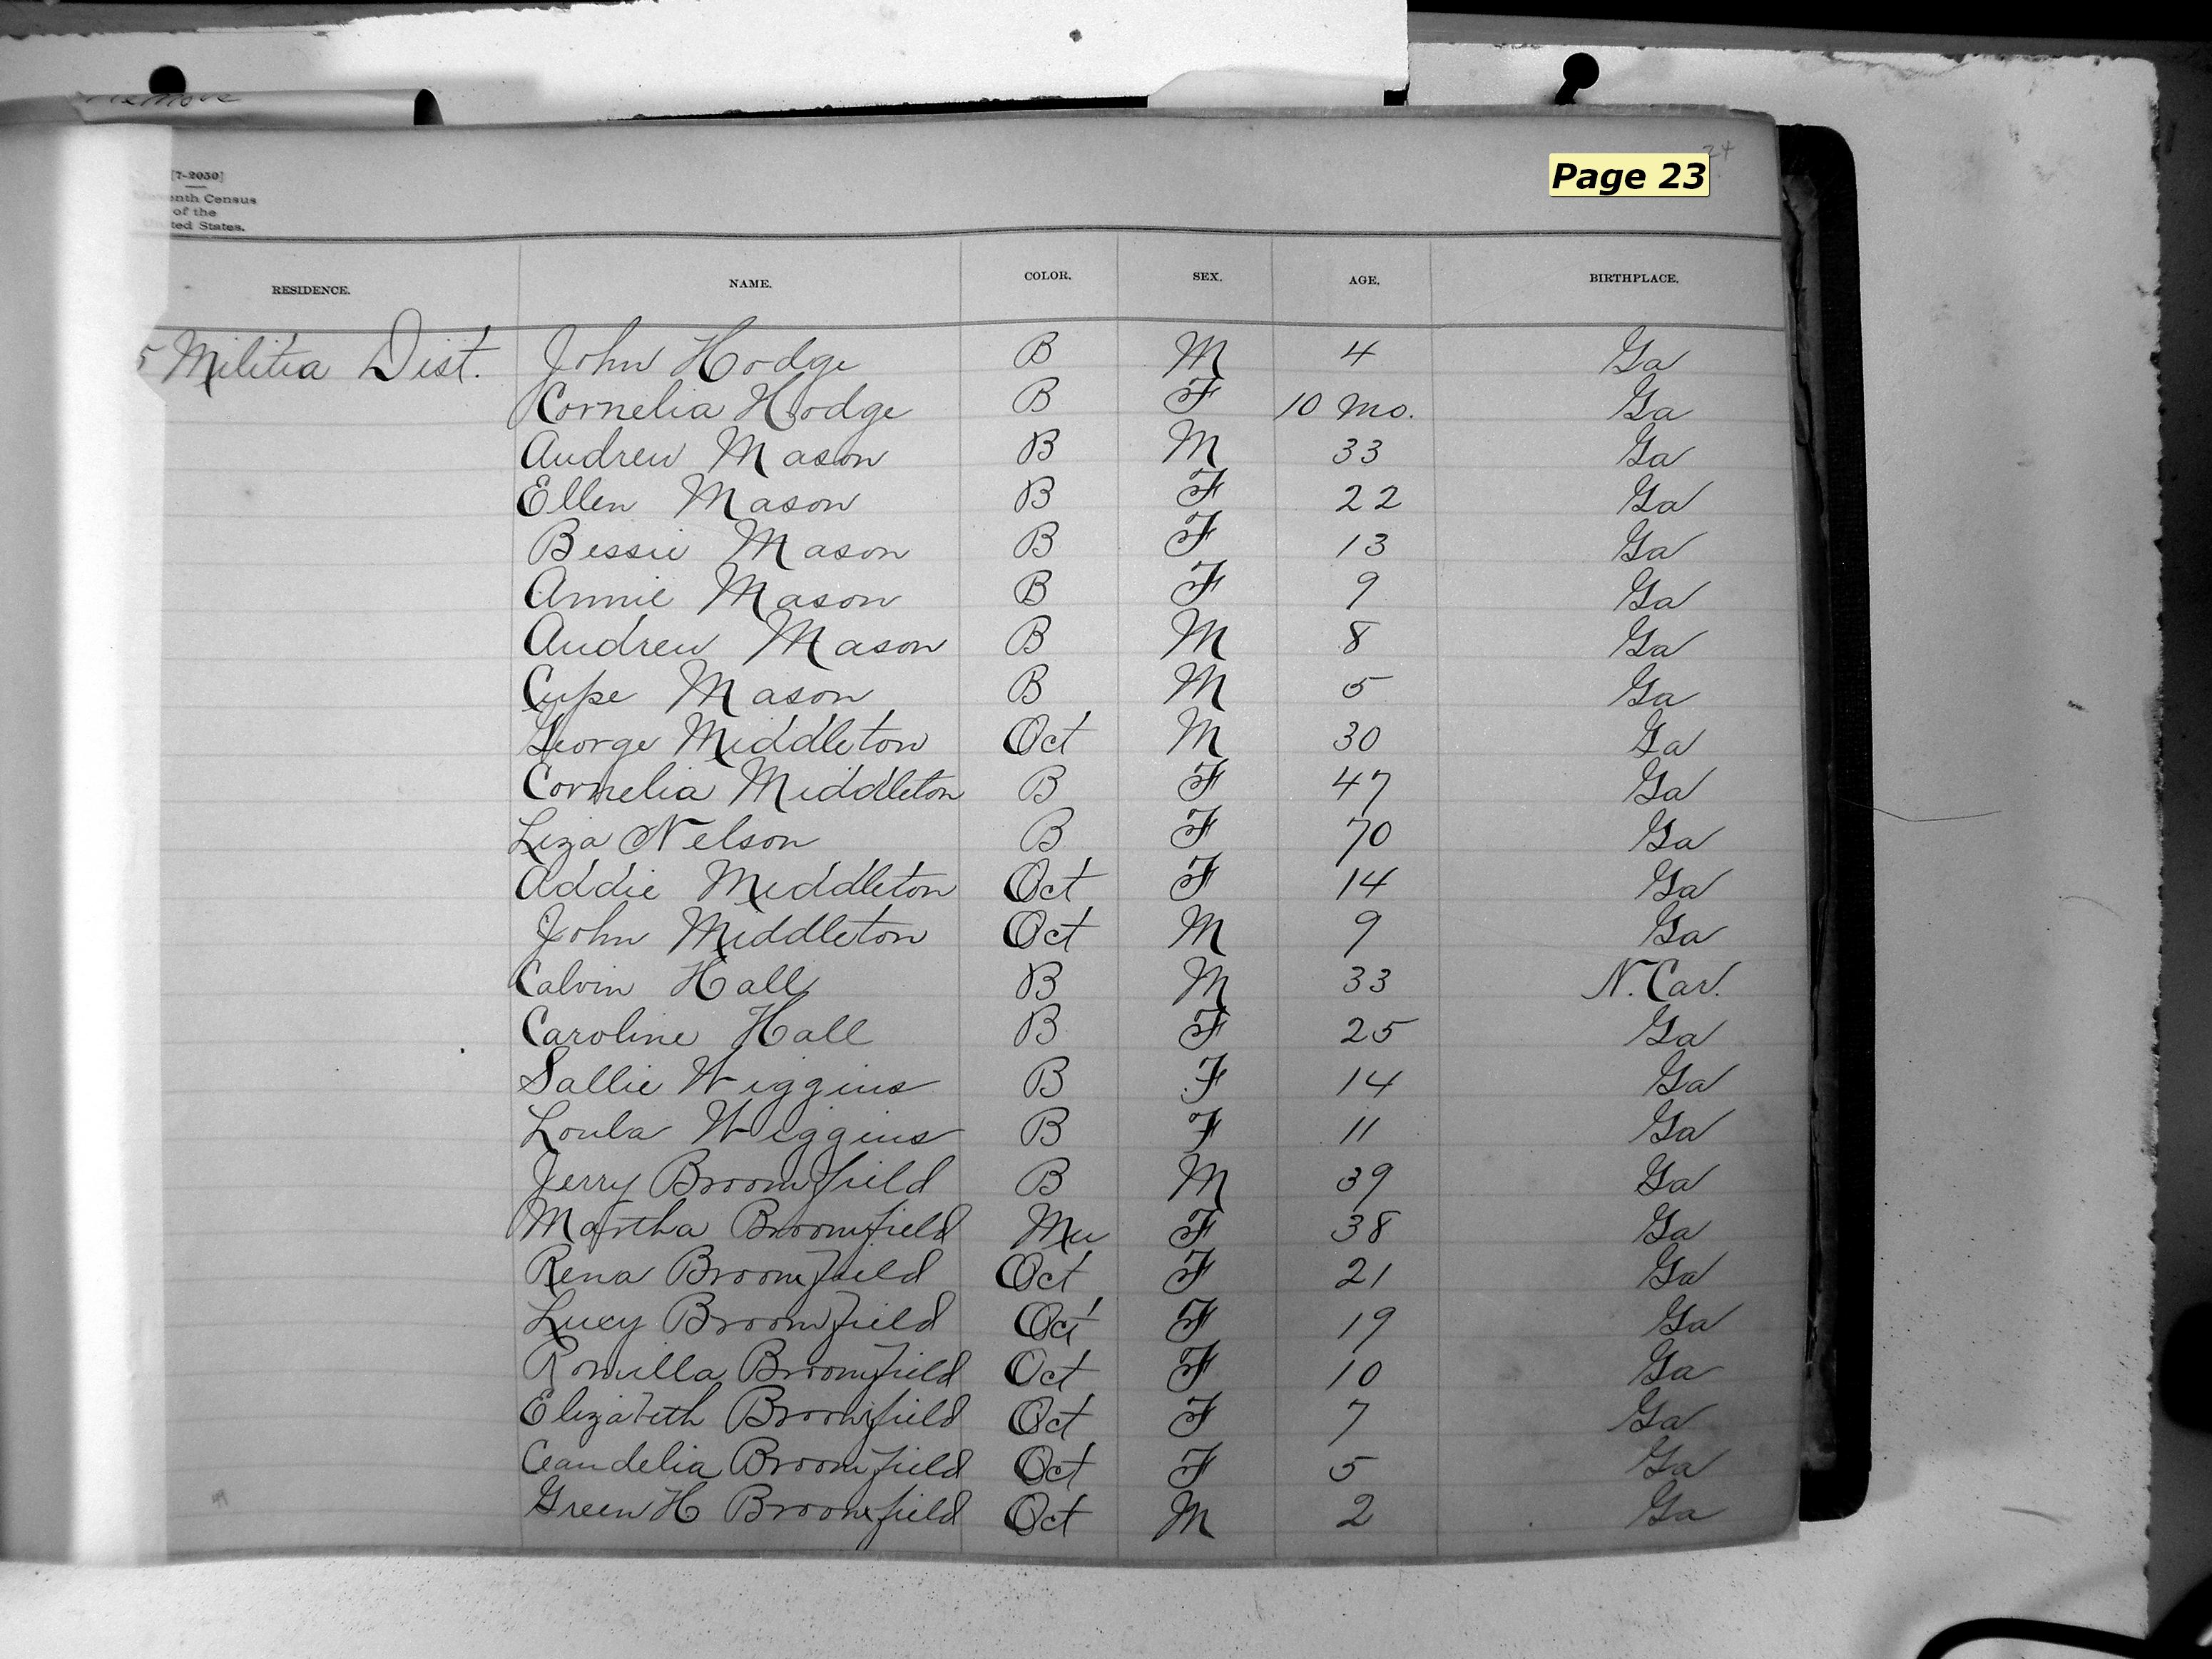 24
Page 23
[7-2050]
enth Census
of the
ted States.
RESIDENCE. NAME. COLOR. SEX. AGE. BIRTHPLACE.
5 Militia Dist. John Hodge B M 4 Ga
Cornelia Hodge B F 10 mo. Ga
Andrew Mason B M 33 Ga
Ellen Mason B F 22 Ga
Bessie Mason B F 13 Ga
Annie Mason B F 9 Ga
Andrew Mason B M 8 Ga
Cupe Mason B M 5 Ga
George Middleton Oct M 30 Ga
Cornelia Middleton B F 47 Ga
Liza Nelson B F 70 Ga
Addie Middleton Oct F 14 Ga
John Middleton Oct M 9 Ga
Calvin Hall B M 33 N. Car.
Caroline Hall B F 25 Ga
Sallie Wiggins B F 14 Ga
Loula Wiggins B F 11 Ga
Jerry Broomfield B M 39 Ga
Martha Broomfield Mu F 38 Ga
Rena Broomfield Oct F 21 Ga
Lucy Broomfield Oct F 19 Ga
Romilla Broomfield Oct F 10 Ga
Elizabeth Broomfield Oct F 7 Ga
Ceandelia Broomfield Oct F 5 Ga
Green H Broomfield Oct M 2 Ga